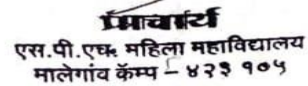 प्राचार्य
एस.पी.एच. महिला महाविद्यालय
मालेगांव कॅम्प – ४२३ १०५